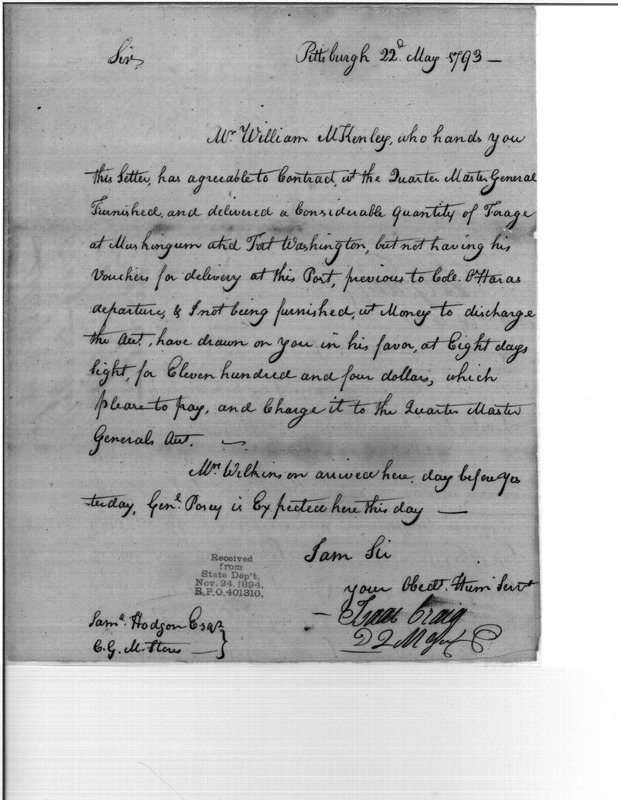 Sir, Pittsburgh 22d. May 1793 —
Mr. William McKenley, who hands you
this Letter, has agreeable to Contract, wt the Quarter Master General
Furnished, and delivered a Considerable quantity of Forage
at Muskingum and Fort Washington, but not having his
Vouchers for delivery at this Port, previous to Colo. OHaras
departure, & I not being furnished, wt Money to discharge
the Acct., have drawn on you in his favor, at Eight days
Sight, for Eleven hundred and four dollars, which
please to pay, and Charge it to the Quarter Master
Generals Acct. —
Mrs. Wilkinson arrived here, day before yes
terday, Genl. Posey is Expected here this day —
I am Sir
your Obedt. Hum Servt
Isaac Craig
D Q M Genl
Received
from
State Dep't.
Nov. 24, 1894.
R.P.O. 401310.
Saml. Hodgdon Esqr
C.G. M. Stores —